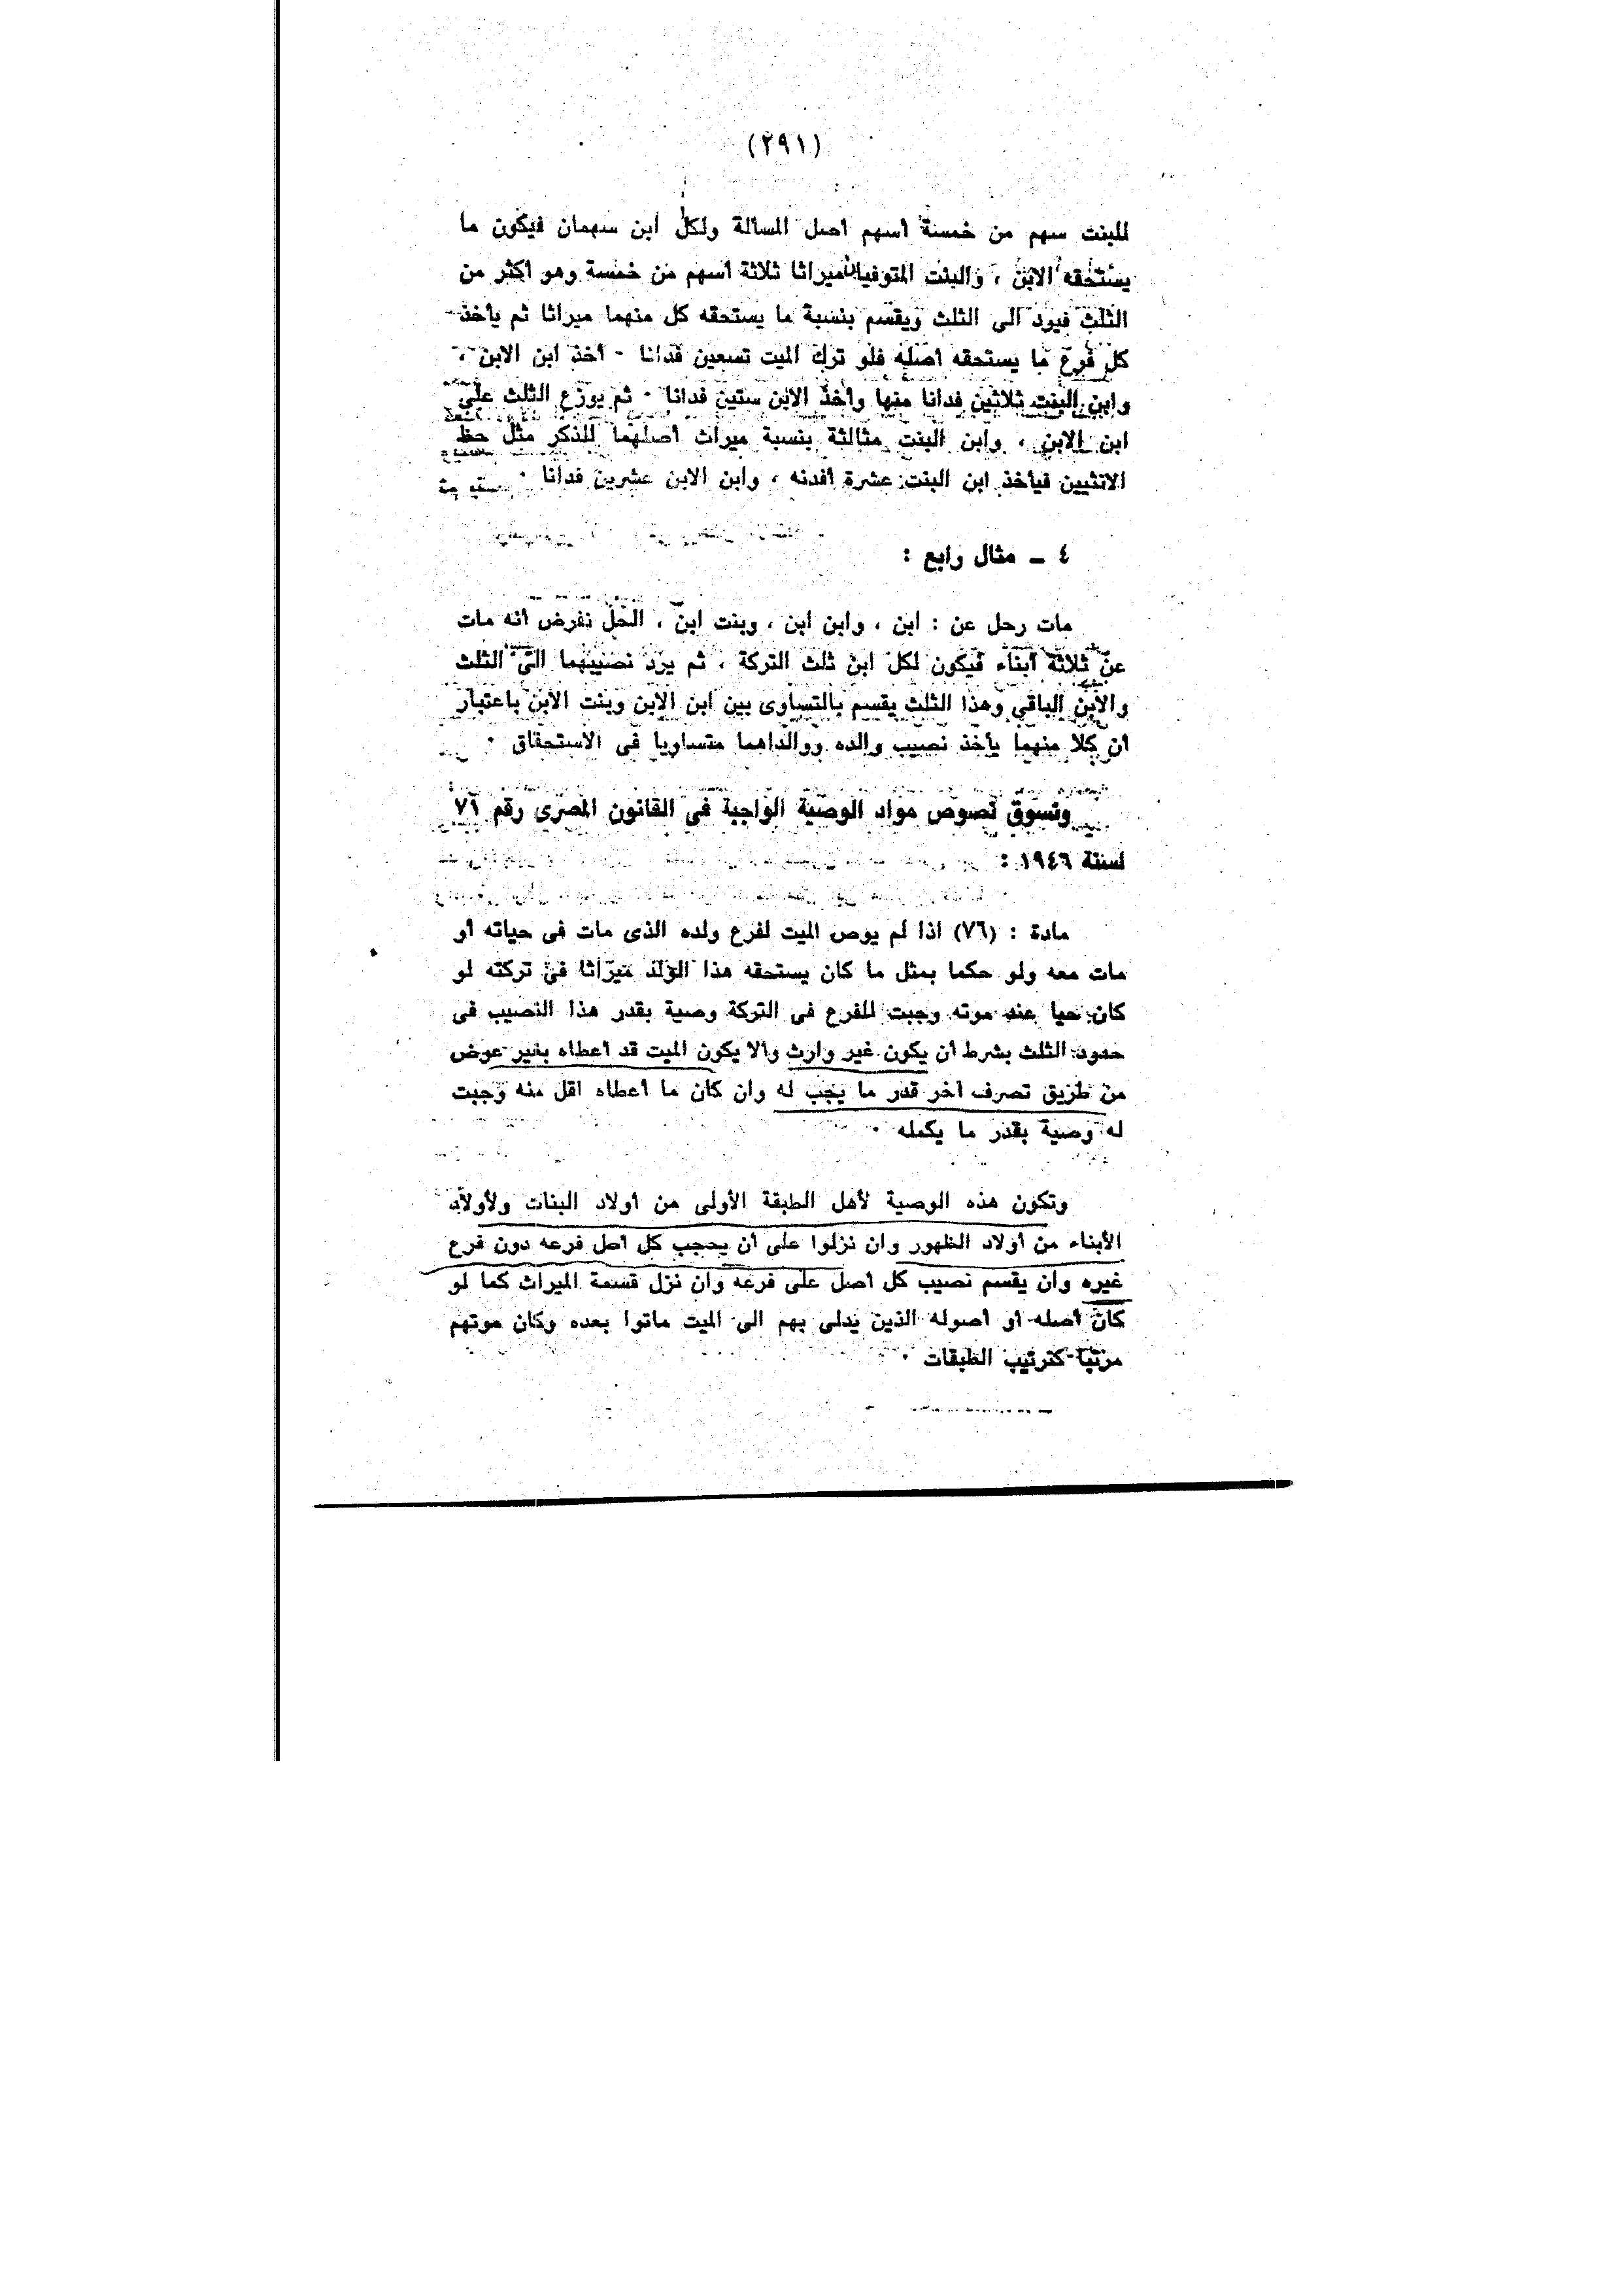 (٢٩١)
للبنت سهم من خمسة أسهم أصل المسألة ولكل ابن سهمان فيكون ما
يستحقه الابن ، والبنت المتوفيان ميراثا ثلاثة أسهم من خمسة وهو أكثر من
الثلث فيرد الى الثلث ويقسم بنسبة ما يستحقه كل منهما ميراثا ثم يأخذ
كل فرع ما يستحقه أصله فلو ترك الميت تسعين فدانا ٠ أخذ ابن الابن ،
وابن البنت ثلاثين فدانا منها وأخذ الابن ستين فدانا ٠ ثم يوزع الثلث على
ابن الابن ، وابن البنت مثالثة بنسبة ميراث أصلهما للذكر مثل حظ
الانثيين فيأخذ ابن البنت عشرة أفدنه ، وابن الابن عشرين فدانا ٠
٤ ــ مثال رابع :
مات رحل عن : ابن ، وابن ابن ، وبنت ابن ، الحل نفرض أنه مات
عن ثلاثة أبناء فيكون لكل ابن ثلث التركة ، ثم يرد نصيبهما الى الثلث
والابن الباقي وهذا الثلث يقسم بالتساوى بين ابن الابن وبنت الابن باعتبار
أن كلا منهما يأخذ نصيب والده ووالداهما متساويا فى الاستحقاق ٠
ونسوق نصوص مواد الوصية الواجبة فى القانون المصرى رقم ٧٦
لسنة ١٩٤٦ :
مادة : (٧٦) اذا لم يوص الميت لفرع ولده الذى مات فى حياته أو
مات معه ولو حكما بمثل ما كان يستحقه هذا الولد ميراثا فى تركته لو
كان حيا عند موته وجبت للفرع فى التركة وصية بقدر هذا النصيب فى
حدود الثلث بشرط أن يكون غير وارث وألا يكون الميت قد أعطاه بغير عوض
من طريق تصرف آخر قدر ما يجب له وان كان ما أعطاه اقل منه وجبت
له وصية بقدر ما يكمله ٠
وتكون هذه الوصية لأهل الطبقة الأولى من أولاد البنات ولأولاد
الأبناء من أولاد الظهور وان نزلوا على أن يحجب كل أصل فرعه دون فرع
غيره وان يقسم نصيب كل أصل على فرعه وان نزل قسمة الميراث كما لو
كان أصله أو أصوله الذين يدلى بهم الى الميت ماتوا بعده وكان موتهم
مرتبا كترتيب الطبقات ٠